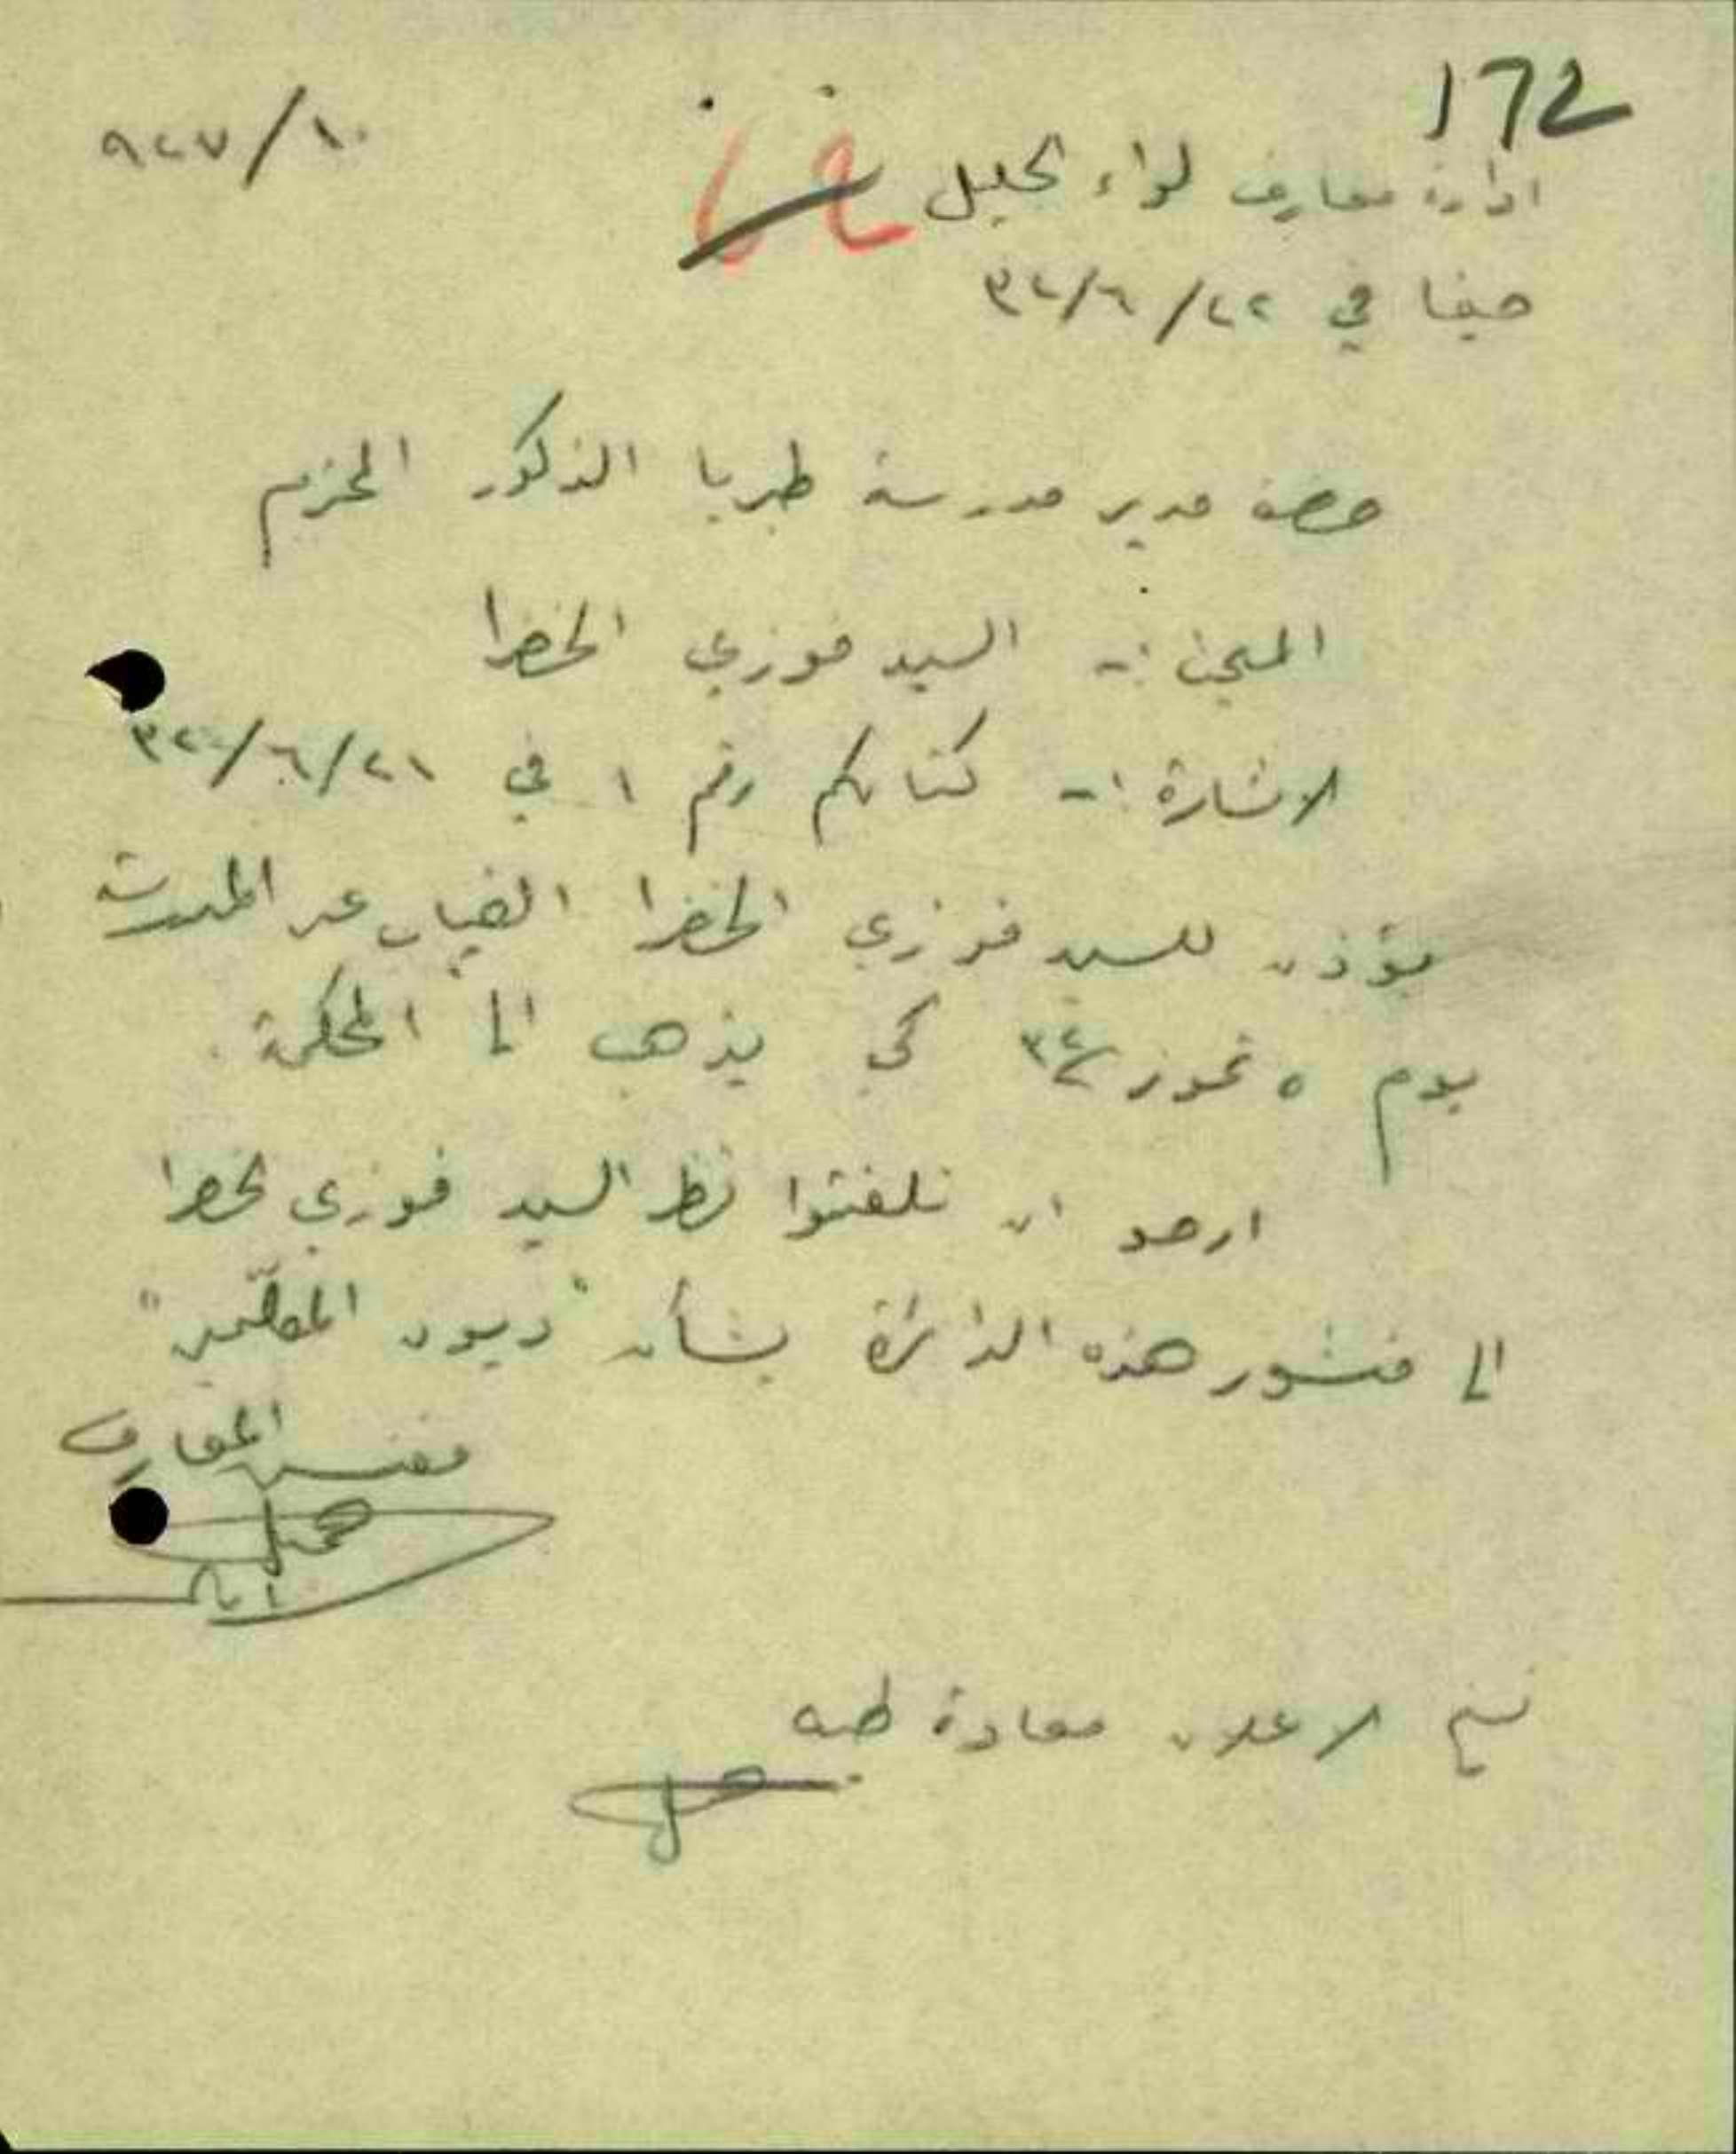 172
٩٢٧/١٠
ادارة معارف لواء الجليل
حيفا في ٢٢/٦/٣٢
حضرة مدير مدرسة طبريا الذكور المحترم
المبحث :- السيد فوزي الخضرا
الاشارة :- كتابكم رقم ١ في ٢١/٦/٣٢
يؤذن للسيد فوزي الخضرا الغياب عن المدرسة
يوم ٥ تموز ٣٢ كي يذهب الى المحكمة .
ارجو ان تلفتوا نظر السيد فوزي الخضرا
الى منشور هذه الدائرة بشأن "ديون المعلّمين"
مفتش المعارف